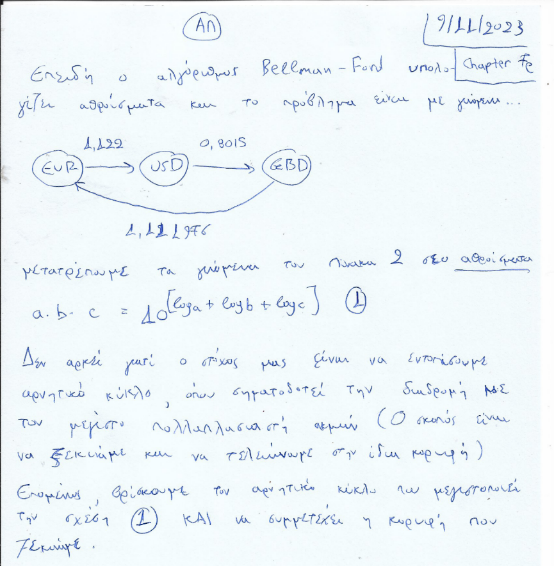 ΑΠ
9/11/2023
Επειδή ο αλγόριθμος Bellman-Ford υπολο-
Chapter
γίζει αθροίσματα και το πρόβλημα είναι με γινόμενα...
1,122
0,8015
EUR
USD
GBD
1,111976
μετατρέπουμε τα γινόμενα του πίνακα 2 σε αθροίσματα
a.b.c = 10^[loga + logb + logc] 1
Δεν αρκεί γιατί ο στόχος μας είναι να εντοπίσουμε
αρνητικό κύκλο, όπου σηματοδοτεί την διαδρομή με
τον μέγιστο πολλαπλασιαστή ακμών (Ο σκοπός είναι
να ξεκινάμε και να τελειώνουμε στην ίδια κορυφή)
Επομένως, βρίσκουμε τον αρνητικό κύκλο που μεγιστοποιεί
την σχέση 1 ΚΑΙ να συμμετέχει η κορυφή που
ξεκινάμε.